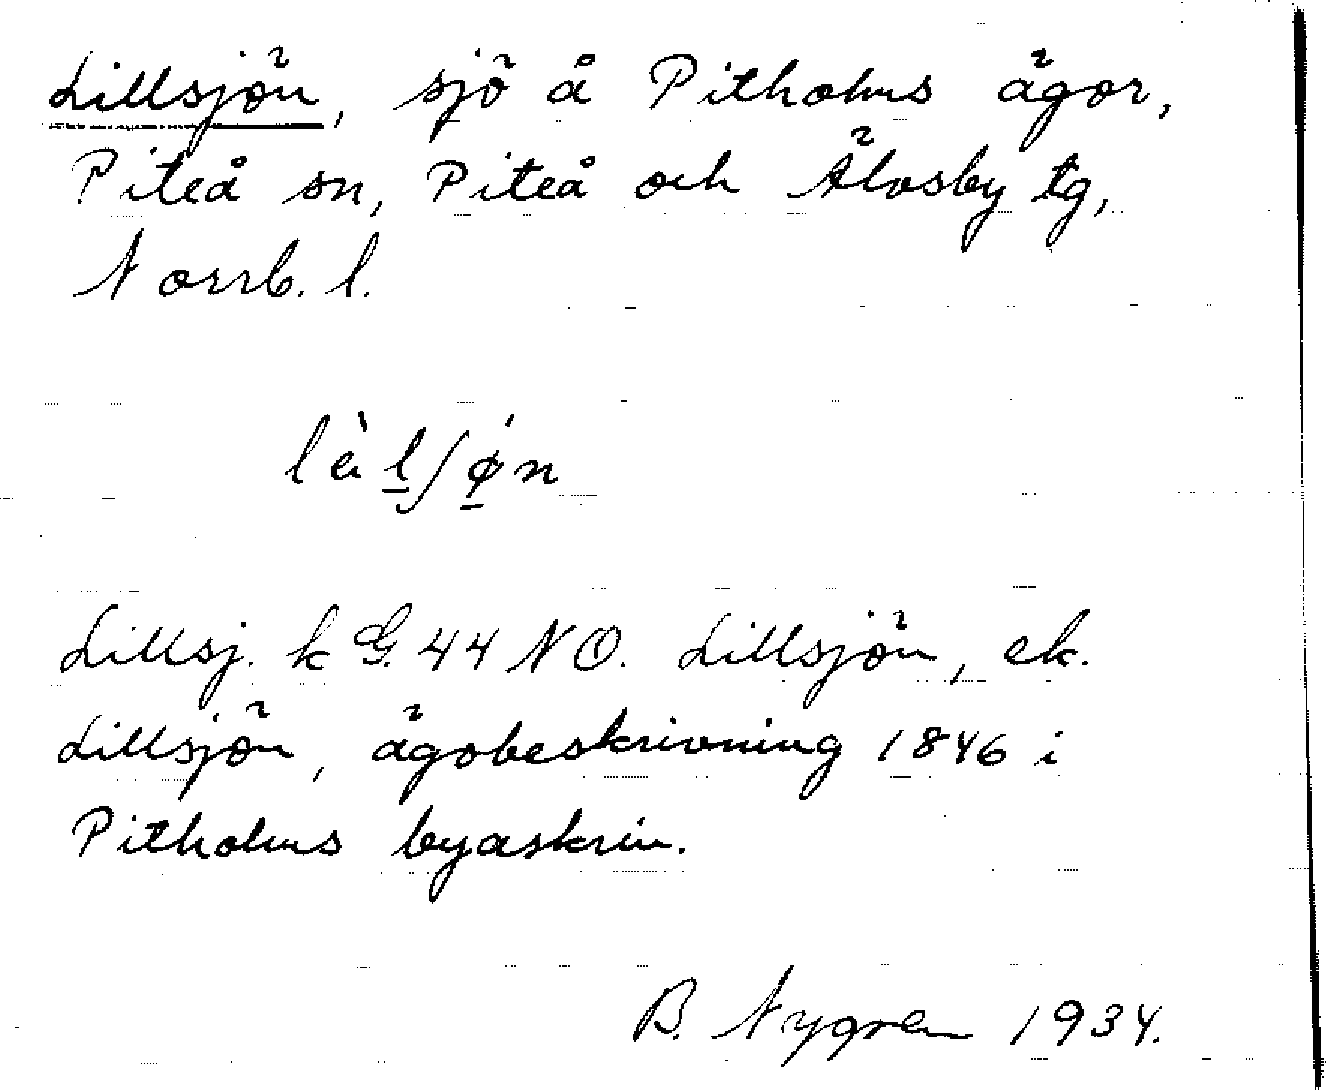 Lillsjön, sjö å Pitholms ägor,
Piteå sn, Piteå och Älvsby tg,
Norrb. l.
Lillsj. k G. 44 NO. Lillsjön, ek.
Lillsjön, ägobeskrivning 1846 i
Pitholms byaskrin.
B. Nygren 1934.